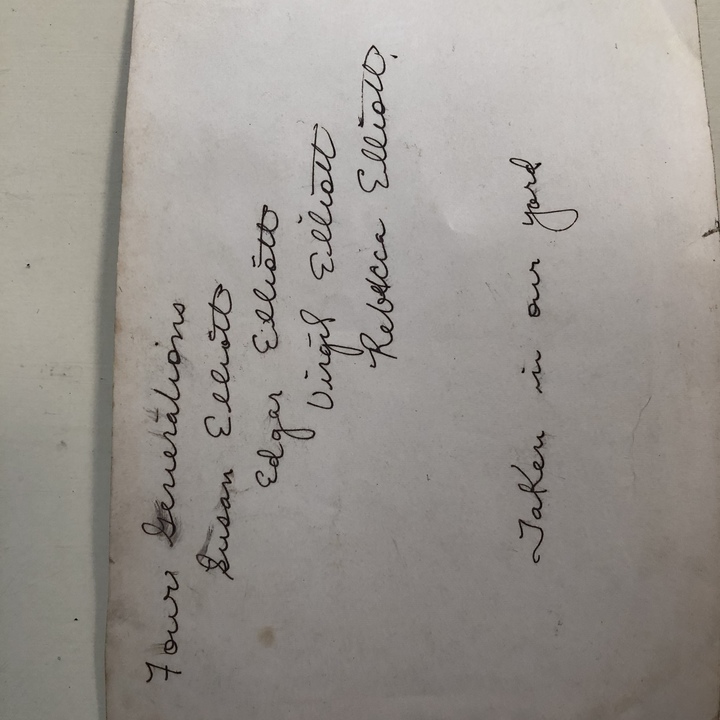 Four Generations
Susan Elliott
Edgar Elliott
Virgil Elliott
Rebecca Elliott.
Taken in our yard